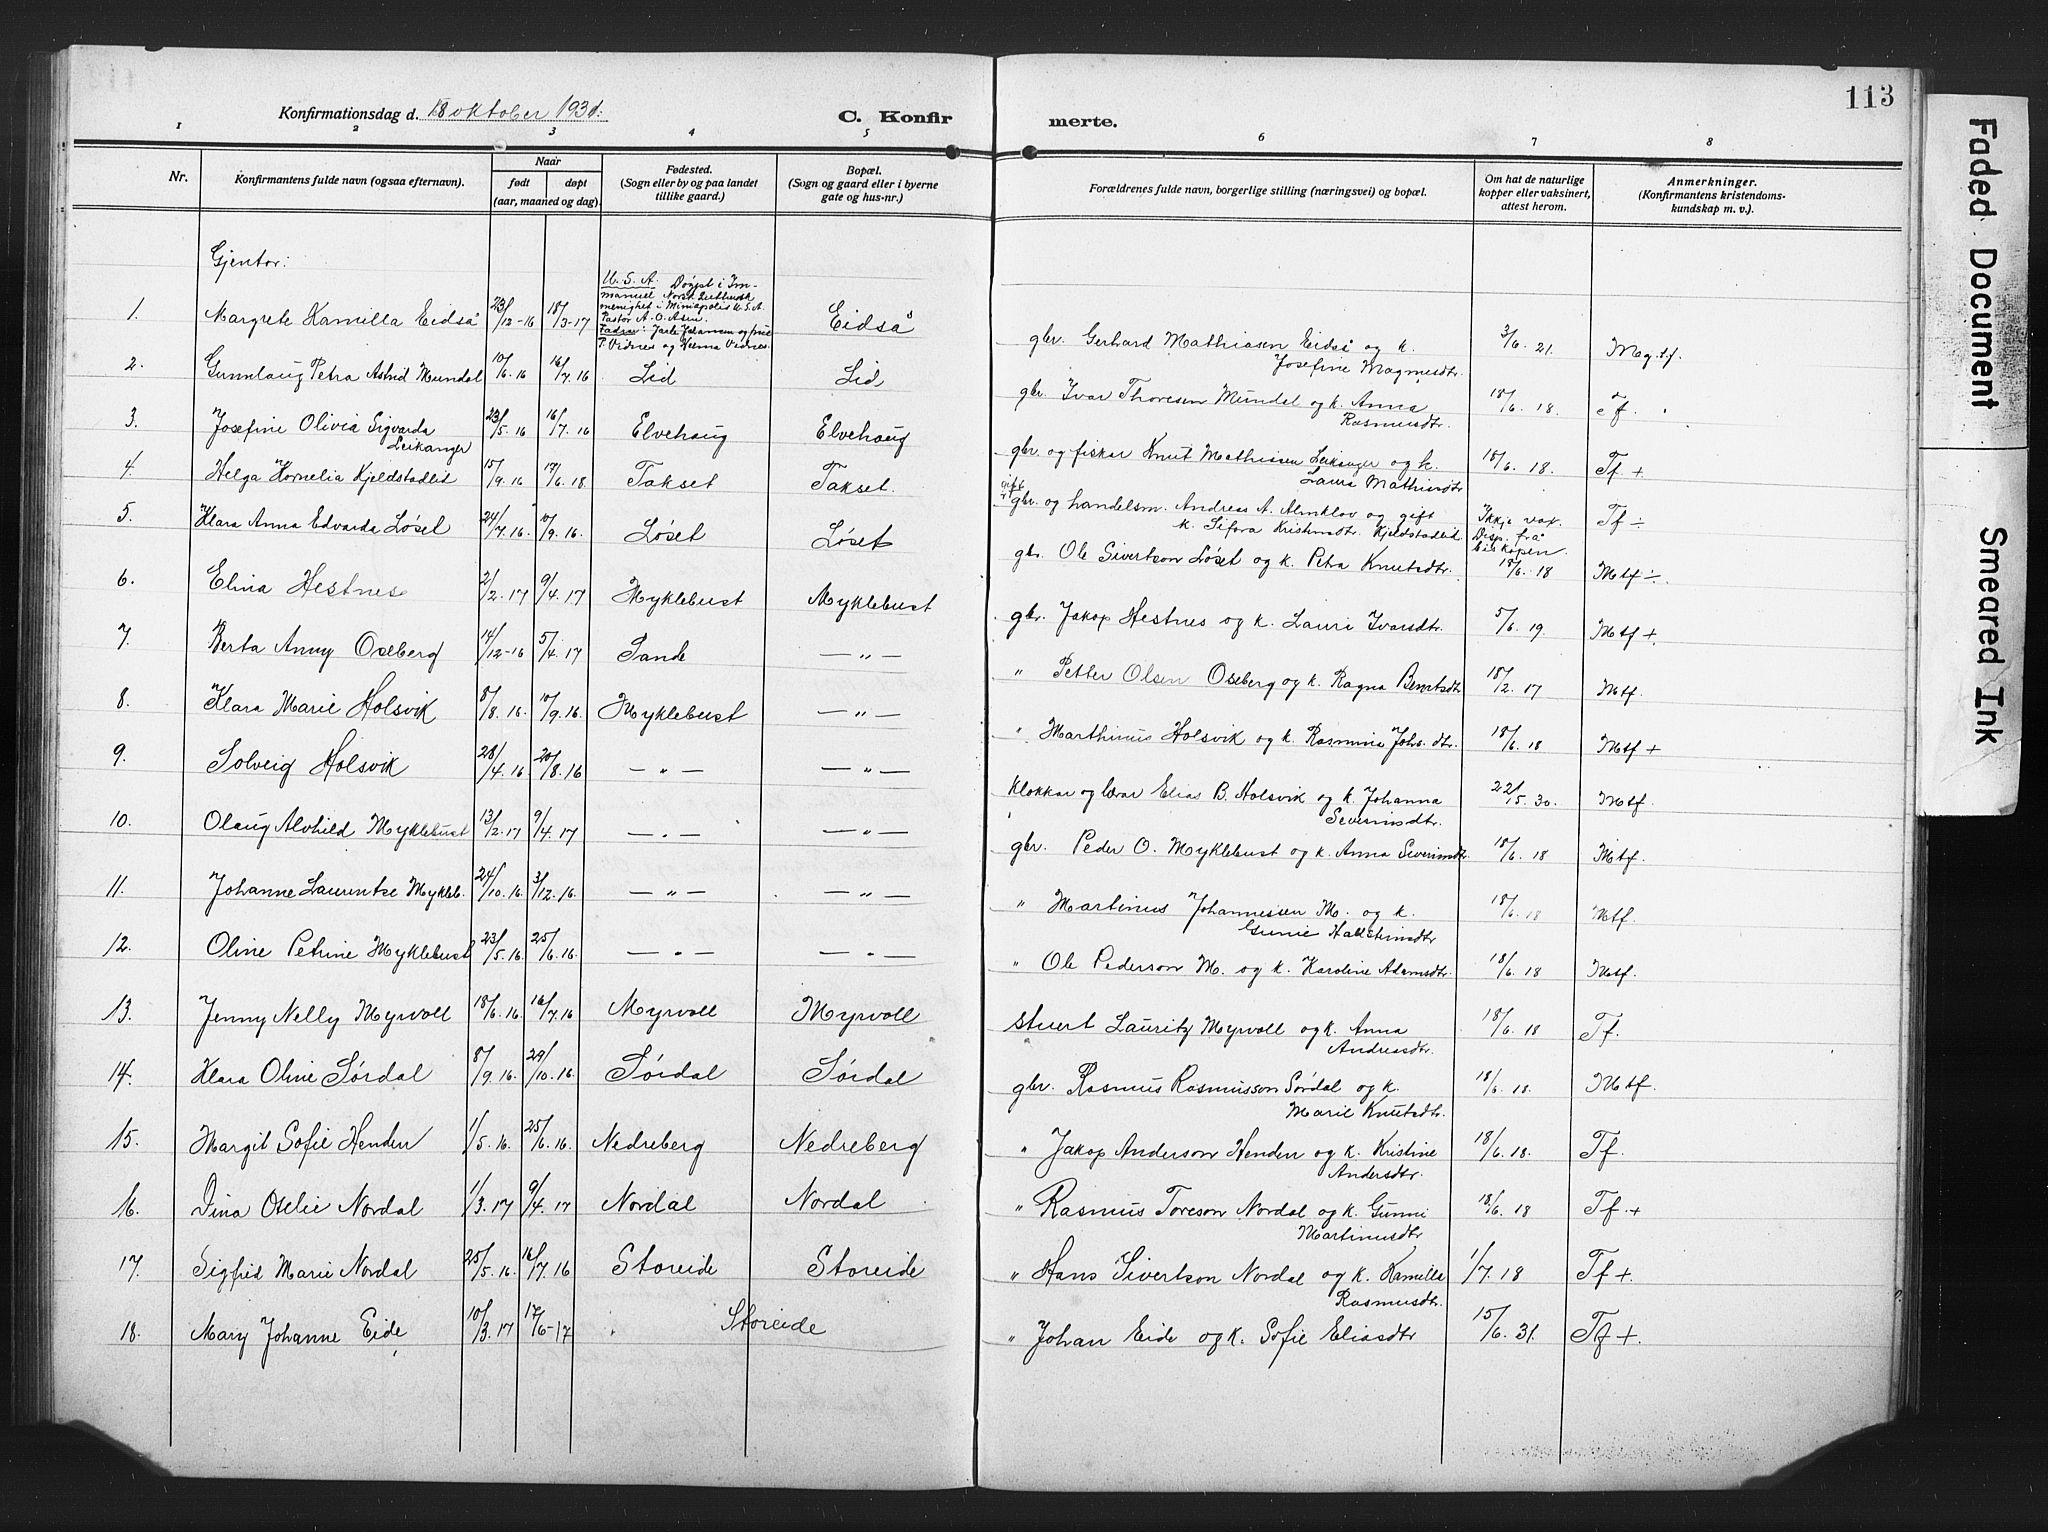 113
Konfirmationsdag d. 18 oktober 1931.
C. Konfirmerte.
1 2 3 4 5 6 7 8
Nr.
Konfirmantens fulde navn (ogsaa efternavn).
Naar
født døpt
(aar, maaned og dag).
Fødested.
(Sogn eller by og paa landet
tillike gaard.)
Bopæl.
(Sogn og gaard eller i byerne
gate og hus-nr.)
Forældrenes fulde navn, borgerlige stilling (næringsvei) og bopæl.
Om hat de naturlige
kopper eller vaksinert,
attest herom.
Anmerkninger.
(Konfirmantens kristendoms-
kundskap m. v.).
Gjentor:
U. S. A. Døypt i Im-
manuel Norsk Luthersk
menighet i Miniapolis U. S. A.
Pastor A. O.
Fadrar: Jarle Johansen og frue
P. Vidnes og Velma Vidnes.
1. Margrete Kamilla Eidså 23/12-16 18/3-17 Eidså gbr. Gerhard Mathiasen Eidså og k. 3/6. 21. Mg.tf.
Josefine Magnusdtr.
2. Gunnlaug Petra Astrid Mundal 10/6.16 16/7.16 Lid Lid gbr. Ivar Thoresen Mundal og k. Anna 18/6. 18. Tf.
Rasmusdtr.
3. Josefine Olivia Sigvarda 23/5.16 16/7.16 Elvehaug Elvehaug gbr. og fiskar Knut Mathiasen Leikanger og k. 18/6. 18. Tf +
Leikanger Laura Mathiasdtr
4. Helga Kornelia Kjeldstadlid 15/9.16 17/6.18 Takset Takset. ugift gbr. og handelsm. Andreas A. Almklov og gift Ikkje vax. Tf ÷
k. Sifora Kristensdtr. Kjeldstadlid Disp. frå
Biskopen.
5. Klara Anna Edvarda Løset 24/7.16. 10/9.16 Løset Løset gbr. Ole Sivertson Løset og k. Petra Knutsdtr. 18/6. 18 Mtf ÷.
6. Elina Hestnes 2/2.17 9/4.17 Myklebust Myklebust gbr. Jakop Hestnes og k. Lauri Ivarsdtr. 5/6. 19. Mtf +
7. Berta Anny Oseberg 14/12-16 5/4.17 Sande — " — " Petter Olsen Oseberg og k. Ragna Berntsdtr 18/2. 17 Mtf
8. Klara Marie Holsvik 8/8.16. 10/9.16. Myklebust — " — " Marthinus Holsvik og k. Rasmine Johs. dtr. 18/6. 18 Mtf +
9. Solveig Holsvik 28/4.16. 20/8.16 — " — — " — Klokkar og lærar Elias B. Holsvik og k. Johanna 22/5. 30. Mtf.
Severinsdtr.
10. Olaug Alvhild Myklebust 13/2.17 9/4.17 — " — — " — gbr. Peder O. Myklebust og k. Anna Siverinsdtr 18/6. 18 Mtf.
11. Johanne Laurentse Mykleb. 24/10.16. 3/12.16. — " — — " — " Martinus Johannessen M. og k. 18/6. 18 Mtf.
12. Oline Petrine Myklebust 23/5.16. 25/6.16. — " — — " — " Ole Pederson M. og k. Karoline Adamsdtr. 18/6. 18 Mtf.
13. Jenny Nelly Myrvoll 18/6.16. 16/7.16 Myrvoll Myrvoll stuert Lauritz Myrvoll og k. Anna 18/6. 18 Tf.
Andreasdtr.
14. Klara Oline Sørdal 8/9.16. 29/10.16. Sørdal Sørdal gbr. Rasmus Rasmusson Sørdal og k. 18/6. 18. Mtf.
Marie Knutsdtr.
15. Margit Sofie Henden 1/5.16. 25/6.16. Nedreberg Nedreberg " Jakop Anderson Henden og k. Kristine 18/6. 18. Tf.
Andersdtr.
16. Dina Oselie Nordal 1/3.17 9/4.17 Nordal Nordal " Rasmus Toreson Nordal og k. Gunni 18/6. 18 Tf. +
Martinusdtr
17. Sigfrid Marie Nordal 25/5.16. 16/7.16 Storeide Storeide " Hans Sivertson Nordal og k. Kamilla 1/7. 18 Tf +.
Rasmusdtr.
18. Mary Johanne Eide 10/3.17 17/6-17 Storeide " Johan Eide og k. Sofie Eliasdtr 15/6. 31. Tf +.
Faded Document
Smeared Ink